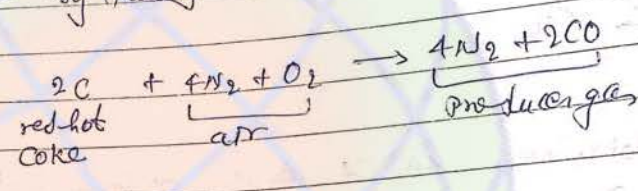 2C + 4N₂ + O₂ → 4N₂ + 2CO
red-hot coke
air
Producer gas